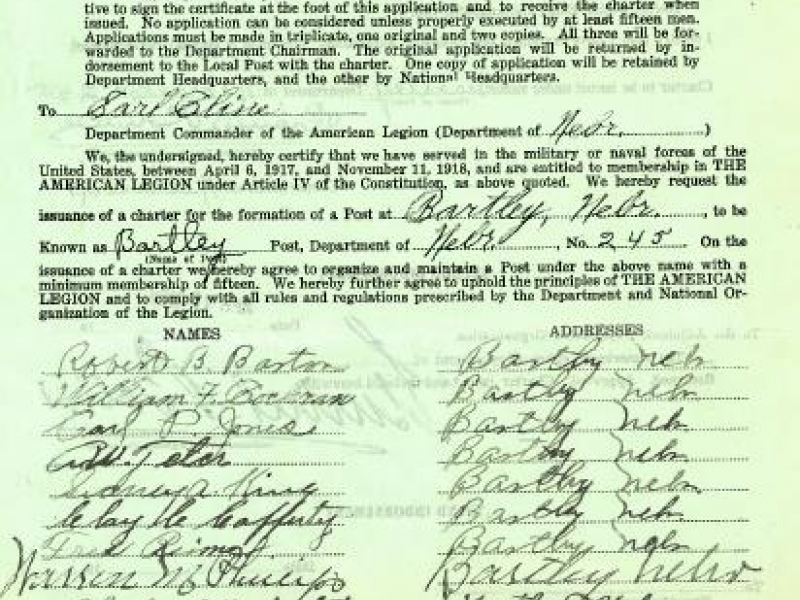 tive to sign the certificate at the foot of this application and to receive the charter when
issued. No application can be considered unless properly executed by at least fifteen men.
Applications must be made in triplicate, one original and two copies. All three will be for-
warded to the Department Chairman. The original application will be returned by in-
dorsement to the Local Post with the charter. One copy of application will be retained by
Department Headquarters, and the other by National Headquarters.
To Earl Cline
Department Commander of the American Legion (Department of Nebr. )
We, the undersigned, hereby certify that we have served in the military or naval forces of the
United States, between April 6, 1917, and November 11, 1918, and are entitled to membership in THE
AMERICAN LEGION under Article IV of the Constitution, as above quoted. We hereby request the
issuance of a charter for the formation of a Post at Bartley, Nebr. , to be
Known as Bartley Post, Department of Nebr. , No. 245 On the
(Name of Post)
issuance of a charter we hereby agree to organize and maintain a Post under the above name with a
minimum membership of fifteen. We hereby further agree to uphold the principles of THE AMERICAN
LEGION and to comply with all rules and regulations prescribed by the Department and National Or-
ganization of the Legion.
NAMES ADDRESSES
Robert B. Barton Bartley Nebr
William F. Cochran Bartley Nebr
Carl P. Jones Bartley Nebr
Teter Bartley Nebr
Sidney A. King Bartley Nebr
Clay Mc Cafferty Bartley Nebr
Fred Bartley Nebr
Warren M Phillips Bartley Nebr